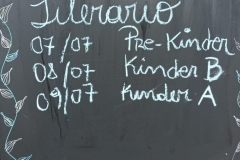 Literario
07/07 Pre-Kinder
08/07 Kinder B
09/07 Kinder A